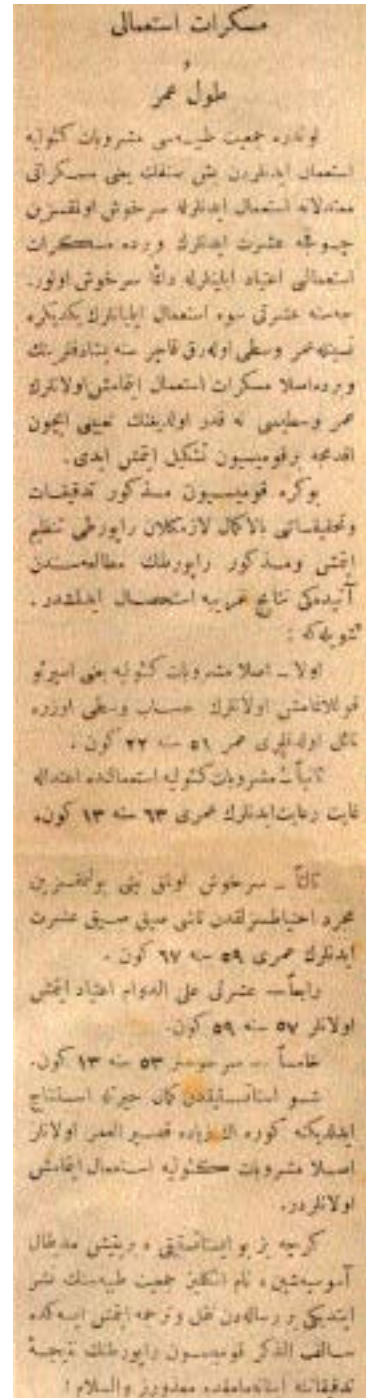 مسكرات استعمالی
و
طول عمر
لوندره جمعیت طبیه‌سی مشروبات كئولیه
استعمال ایدنلردن بش صنفك یعنی مسكراتی
معتدلانه استعمال ایدنلرله سرخوش اولمقسزین
چوقجه عشرت ایدنلرك و برده مسكرات
استعمالی اعتیاد ایلینلرله دائما سرخوش اولور.
جه‌سنه عشرتی سوء استعمال ایلیانلرك یكدیكره
نسبتله عمر وسطی اوله‌رق قاچر سنه یشادقلرینك
و برده اصلا مسكرات استعمال ایتمامش اولانلرك
عمر وسطیسی نه قدر اولدیغنك تعیینی ایچون
اقدمجه بر قومیسیون تشكیل ایتمش ایدی.
بوكره قومیسیون مذكور تدقیقات
و تحقیقاتنی بالاكمال لازمكلان راپورطی تنظیم
ایتمش و مذكور راپورطك مطالعه‌سندن
آتیده‌كی نتایج غریبه استحصال ایدلمشدر.
شویله‌كه :
اولا ـ اصلا مشروبات كئولیه یعنی اسپرتو
قوللانمامش اولانلرك حساب وسطی اوزره
نائل اولدقلری عمر ٥١ سنه ٢٢ كون .
ثانیاً ـ مشروبات كئولیه استعمالنده اعتداله
غایت رعایت ایدنلرك عمری ٦٣ سنه ١٣ كون.
ثالثاً ـ سرخوش اولمق نیتی بولنمقسزین
مجرد احتیاطسزلقدن ناشی صیق صیق عشرت
ایدنلرك عمری ٥٩ سنه ٦٧ كون .
رابعاً ـ عشرتی علی الدوام اعتیاد ایتمش
اولانلر ٥٧ سنه ٥٩ كون.
خامساً ـ سرخوشلر ٥٣ سنه ١٣ كون.
شو استاتستیقدن كمال حیرتله استنتاج
ایدلدیكنه كوره الك زیاده قصیر العمر اولانلر
اصلا مشروبات كئولیه استعمال ایتمامش
اولانلردر.
كرچه بز بو ایستاتستیقی « بریتیش مدیقال
آسوسیه‌شین » نام انكلیز جمعیت طبیه‌سنك نشر
ایتدیكی بر رساله‌دن نقل و ترجمه ایتمش ایسه‌كده
سالف الذكر قومیسیون راپورطنك نتیجهٔ
تدقیقاتنه اینانمامقده معذورز والسلام !